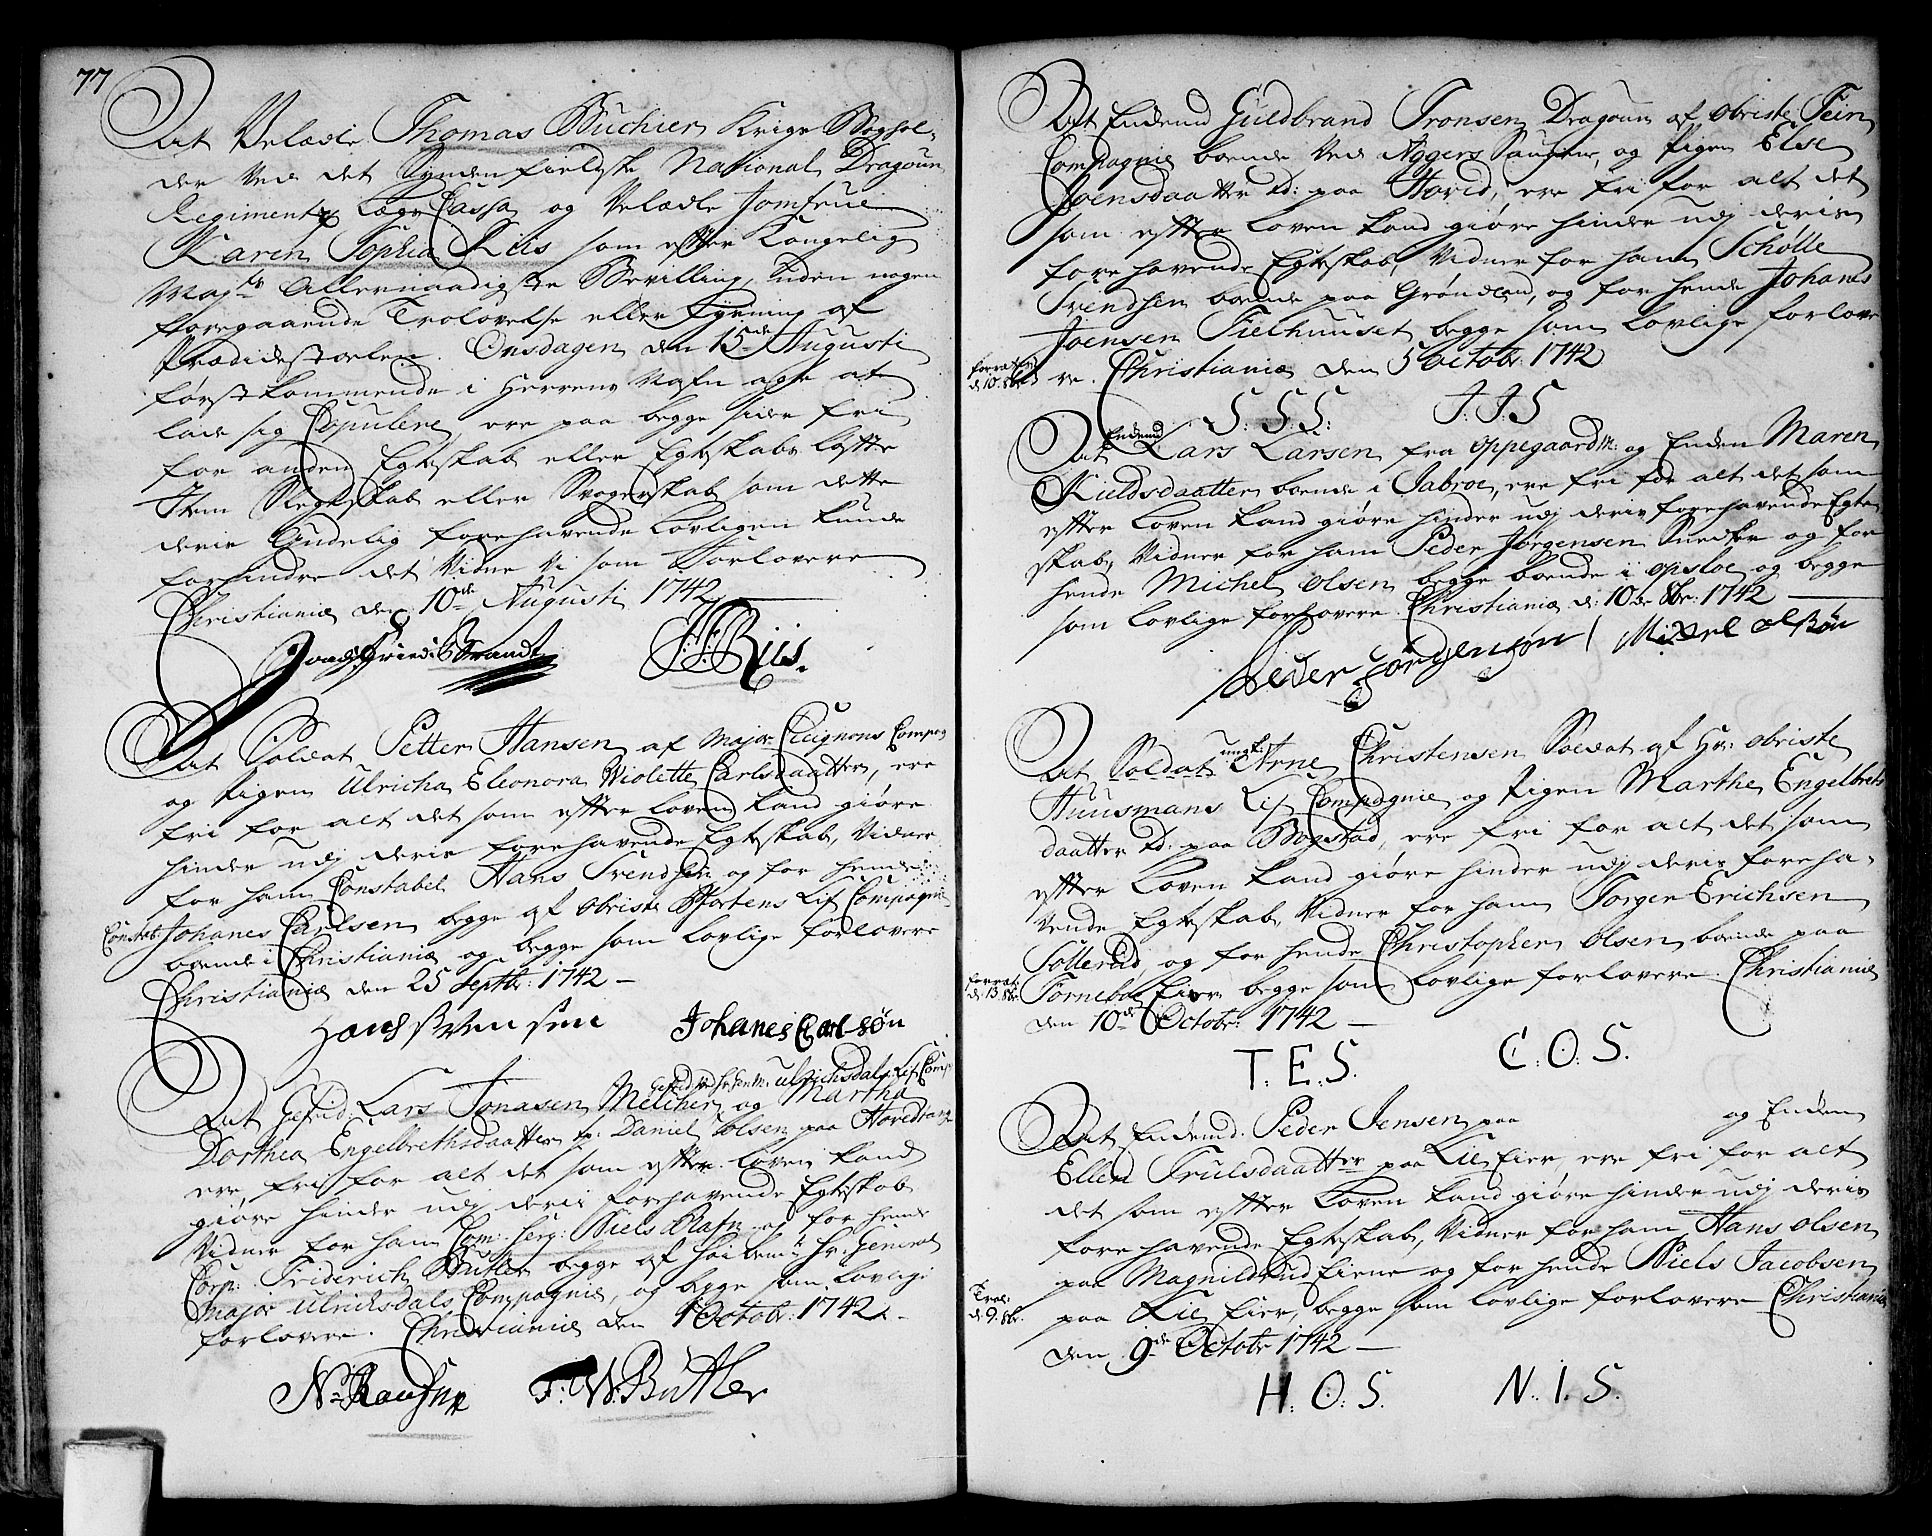 77
At Velædle Thomas Buchier Krigs Boghol-
der ved det Syndenfieldske National Dragoun
Regiments Lægs Cassa og Velædle Jomfrue
Karen Sophia Riis som efter Kongelig
Mayts Allernaadigste Bevilling, uden nogen
foregaaende Trolovelse eller Lysning af
Prædikestoelen. Onsdagen den 15de Augusti
førstkommende i Herrens Nafn agte at
lade sig Copulere, ere paa begge sider fri
for anden Egteskab eller Egteskabs løfte
Item Slegtskab eller Svogerskab som dette
deris Gudelig forehavende lovligen kunde
forhindre det Vidne Vi som Forlovere
Christiania den 10de Augusti 1742
Brandt Riis.
At Soldat Petter Hansen af Major Compag
og Pigen Ulricha Eleonora Violette Carlsdaatter, ere
fri for alt det som efter loven kand giøre
hinder udj deris forehavende Egteskab, Vidner
for ham Constabel Hans Svendsen og for hende
Constab: Johanes Carlsen begge af Obriste Mortens Lif Compagnie
boende i Christiania og begge som lovlige forlovere
Christiania den 25 Septbr: 1742 —
Hans Svensen Johanes Carlsøn
Ulrichsdals Lif Comp:
At Gefrid: Lars Jonasen Melcher og Martha
Dorthea Engelbrethsdaatter Daniel Olsen paa Hovedtang
ere, fri for alt det som efter loven kand
giøre hinder udj deris forehavende Egteskab
Vidner for ham Com: Serg: Niels Rafn og for hende
Corp: Friderich Butler begge af Hr: General
Major Ulrichsdals Compagnie, og begge som lovlige
forlovere. Christiania den 1 Octobr: 1742.
N: Rafn F: W: Butler
At Enkemd Guldbrand Tronsen Dragoun af Obriste
Compagnie boende ved Aggers Sougn, og Pigen Else
Joensdaatter td: paa Hovid, ere fri for alt det
som efter loven kand giøre hinder udj deris
forehavende Egteskab, Vidner for ham Schølle
Svendsen boende paa Grønland, og for hende Johanes
Joensen Tielhuuset begge som lovlige forlove
d: 10. 8br. re. Christiania den 5 Octobr: 1742
S. S S. J. J. S
Enkemd
At Lars Larsen fra Oppegaard og Enken Maren
Kieldsdaatter boende i Labroe, ere fri for alt det som
efter loven kand giøre hinder udj deris forehavende Egte
skab, Vidner for ham Peder Jørgensen Snedker og for
hende Michel Olsen begge boende i Opsloe og begge
som lovlige forlovere Christiania d: 10de 8br: 1742
Peder Jørgensøn Mickel olsøn
ungk:
At Soldat Arne Christensen Soldat af Hr: Obriste
Huusmans Lif Compagnie og Pigen Marthe Engelbrets
daatter td: paa Bogstad, ere fri for alt det som
efter loven kand giøre hinder udj deris foreha-
vende Egteskab, Vidner for ham Torger Erichsen
Sollerud, og for hende Christopher Olsen boende paa
d: 13. 8br. Forneboe Eier begge som lovlige forlovere. Christiania
den 10de Octobr: 1742 —
T. E. S. C. O. S.
At Enkemd: Peder Jensen paa og Enken
Ellen Truulsdaatter paa Lie Eier, ere fri for alt
det som efter loven kand giøre hinder udj deris
forehavende Egteskab, Vidner for ham Hans Olsen
paa Magnildrud Eierne og for hende Niels Jacobsen
Trol: d: 9. 8br. paa Lie Eier, begge som lovlige forlovere Christiania
den 9de Octobr 1742 —
H. O. S. N. I. S.